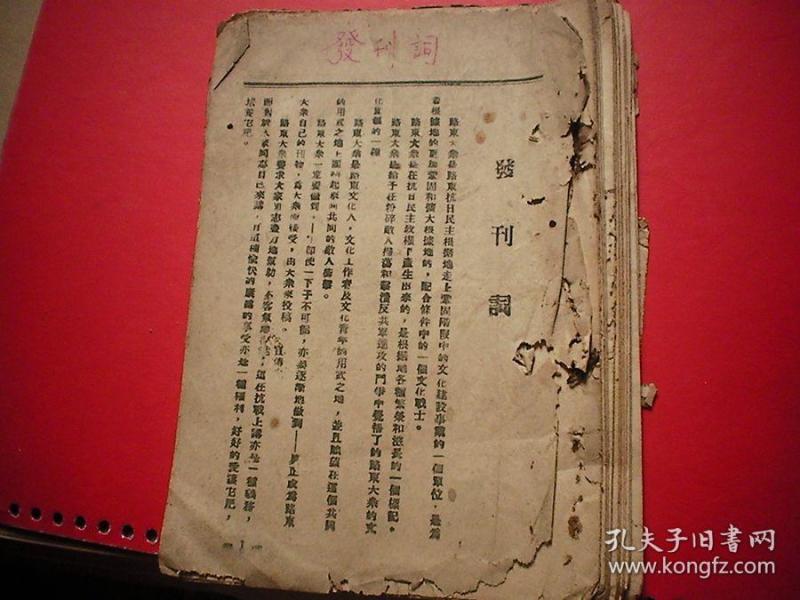 發刊詞
發刊詞
路東大衆是路東抗日民主根據地走上鞏固階段中的文化建設事業的一個單位,是爲
着根據地的更加鞏固和擴大根據地的,配合條件中的一個文化戰士。
路東大衆是在抗日民主政權下產生出來的,是根據地各種繁榮和滋長的一個標記。
路東大衆是給予在粉碎敵人掃蕩和擊潰反共軍進攻的鬥爭中覺悟了的路東大衆的文
化食糧的一種
路東大衆是路東文化人,文化工作者及文化青年的用武之地,並且應該在這個共同
的用武之地上團結起來向共同的敵人襲擊。
路東大衆一定要做到,——卽使一下子不可能,亦要逐漸地做到——眞正成爲路東
大衆自己的刊物,爲大衆所接受,由大衆來投稿。
路東大衆要求大家同志盡力地幫助,不客氣地,這在抗戰上講亦是一種義務,
而對於大家同志自己來講,有這種愉快的義務的享受亦是一種權利,好好的愛護它吧,
培養它吧。
1
孔夫子旧書网
kongfz.com